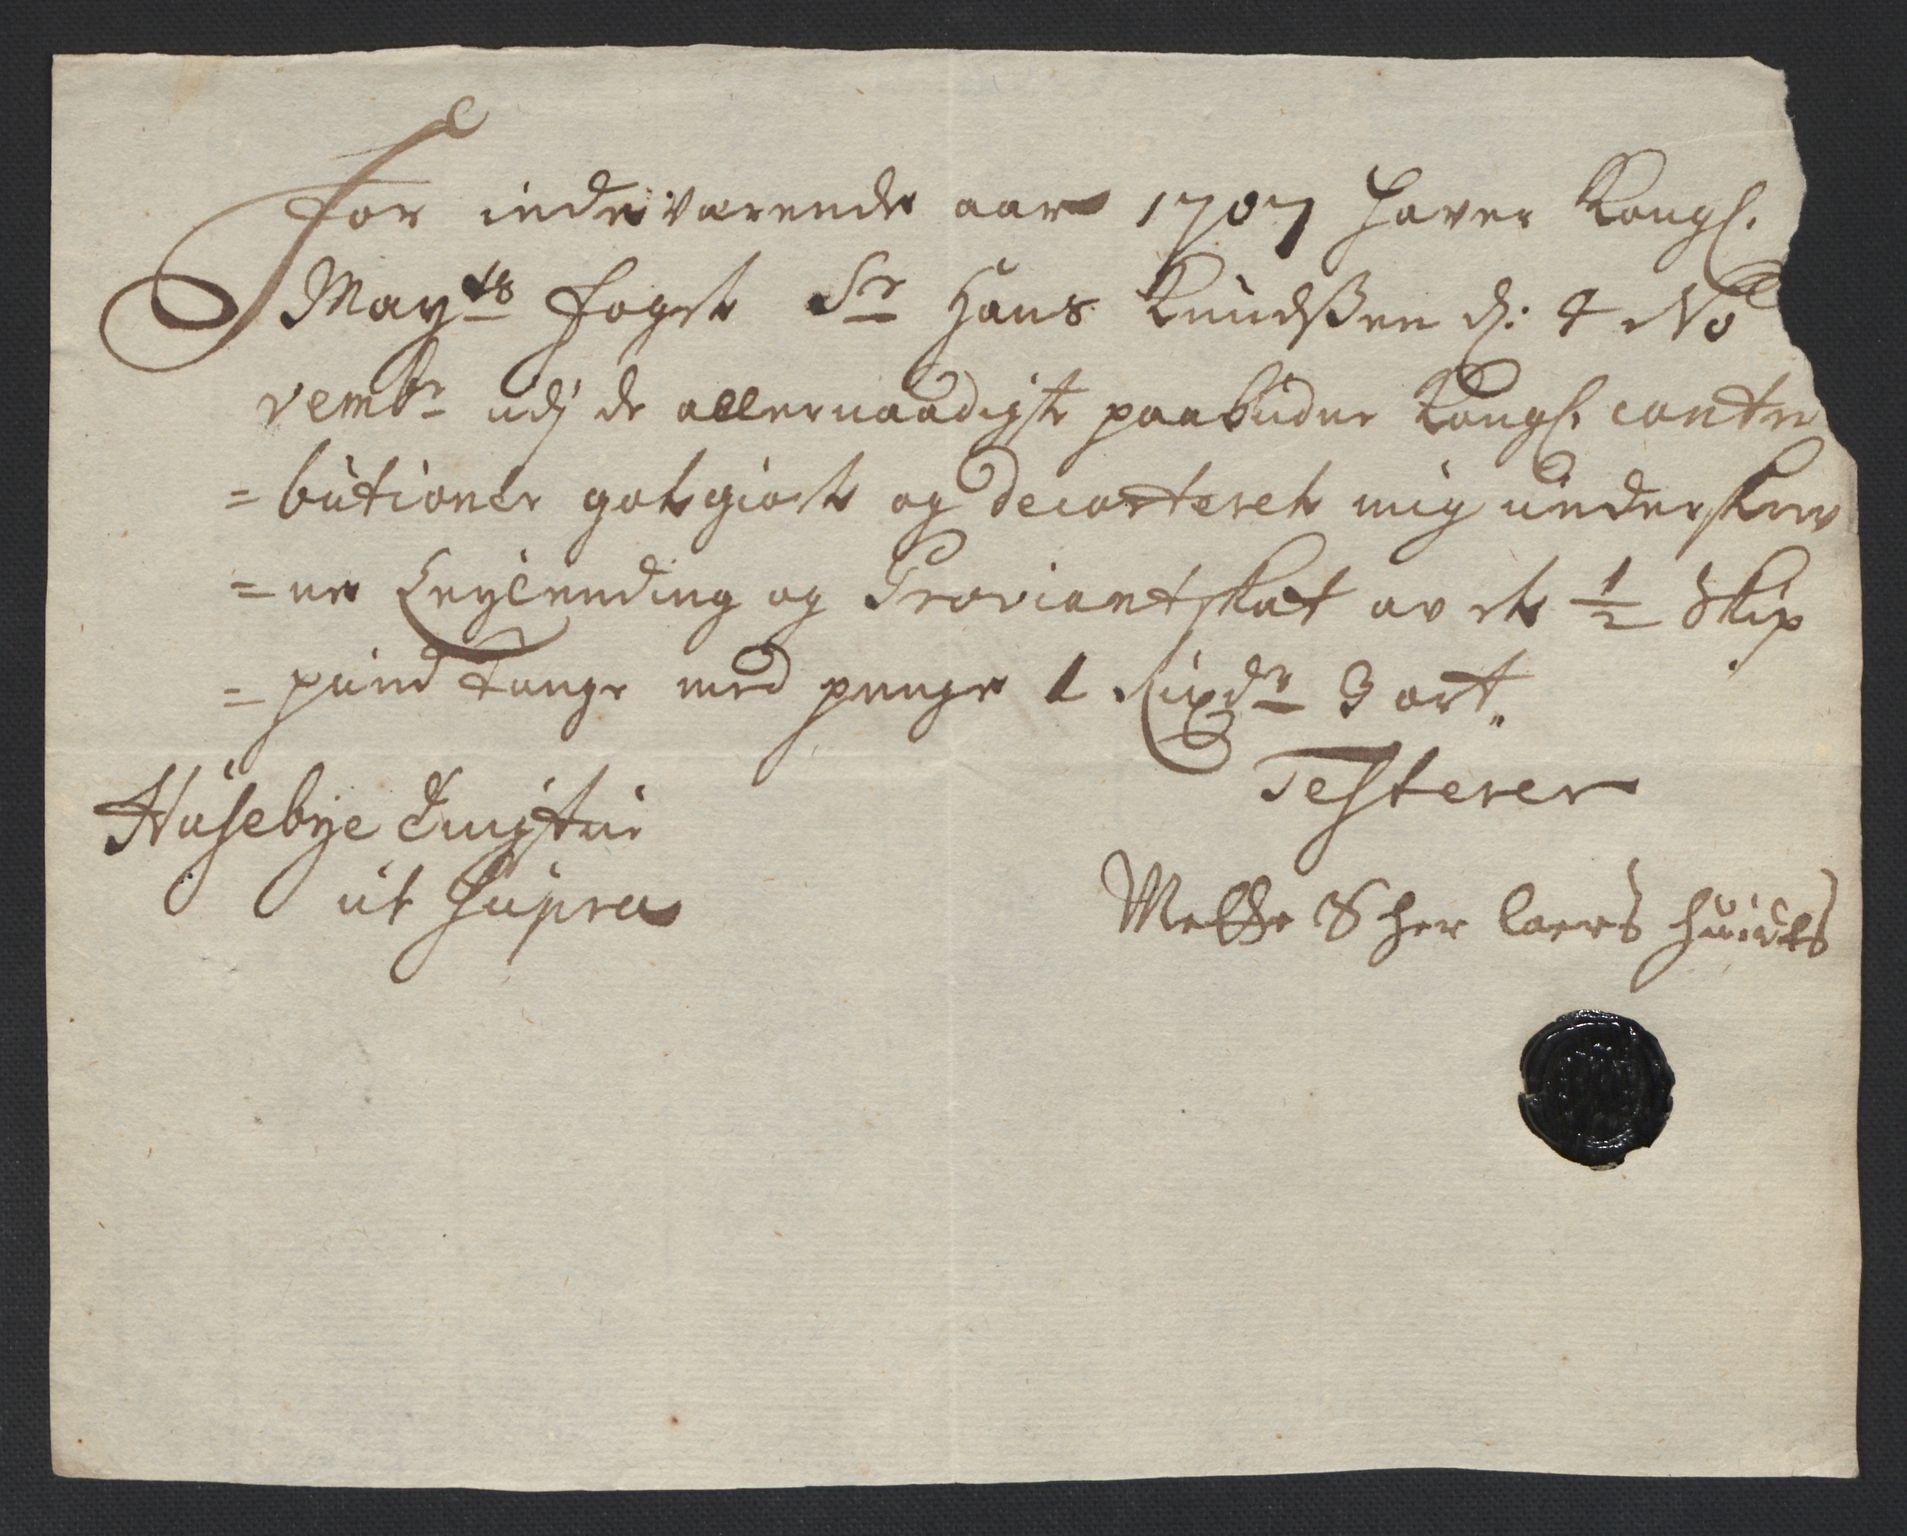 For indeværende aar 1707 haver Kongl.
Mayts foget Sr Hans Knudsßen d: 4 No
vembr udj de allernaadigste paabudne Kongl. contri
=butioner gotgiort og decorteret mig underskrev
=ne Leylending og Proviantskat av et 1/2 Skip
=pund Tunge med penge 1 Rixdr 3 ort.
Testerer
Husebye
ut Supra
Mette Scher Laers